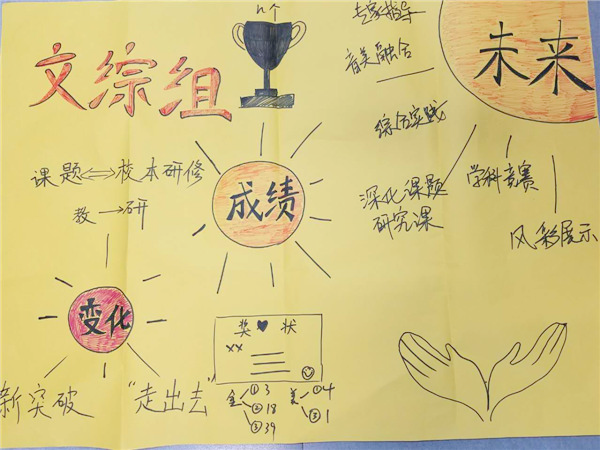 文综组
n↑
专家指导
音美融合
综合实践
深化课题
研究课
未来
学科竞赛
风彩展示
课题⇔校本研修
教→研
成绩
变化
新突破
"走出去"
奖♥状
xx
金 ①3
②18
③39
美 ①4
③1